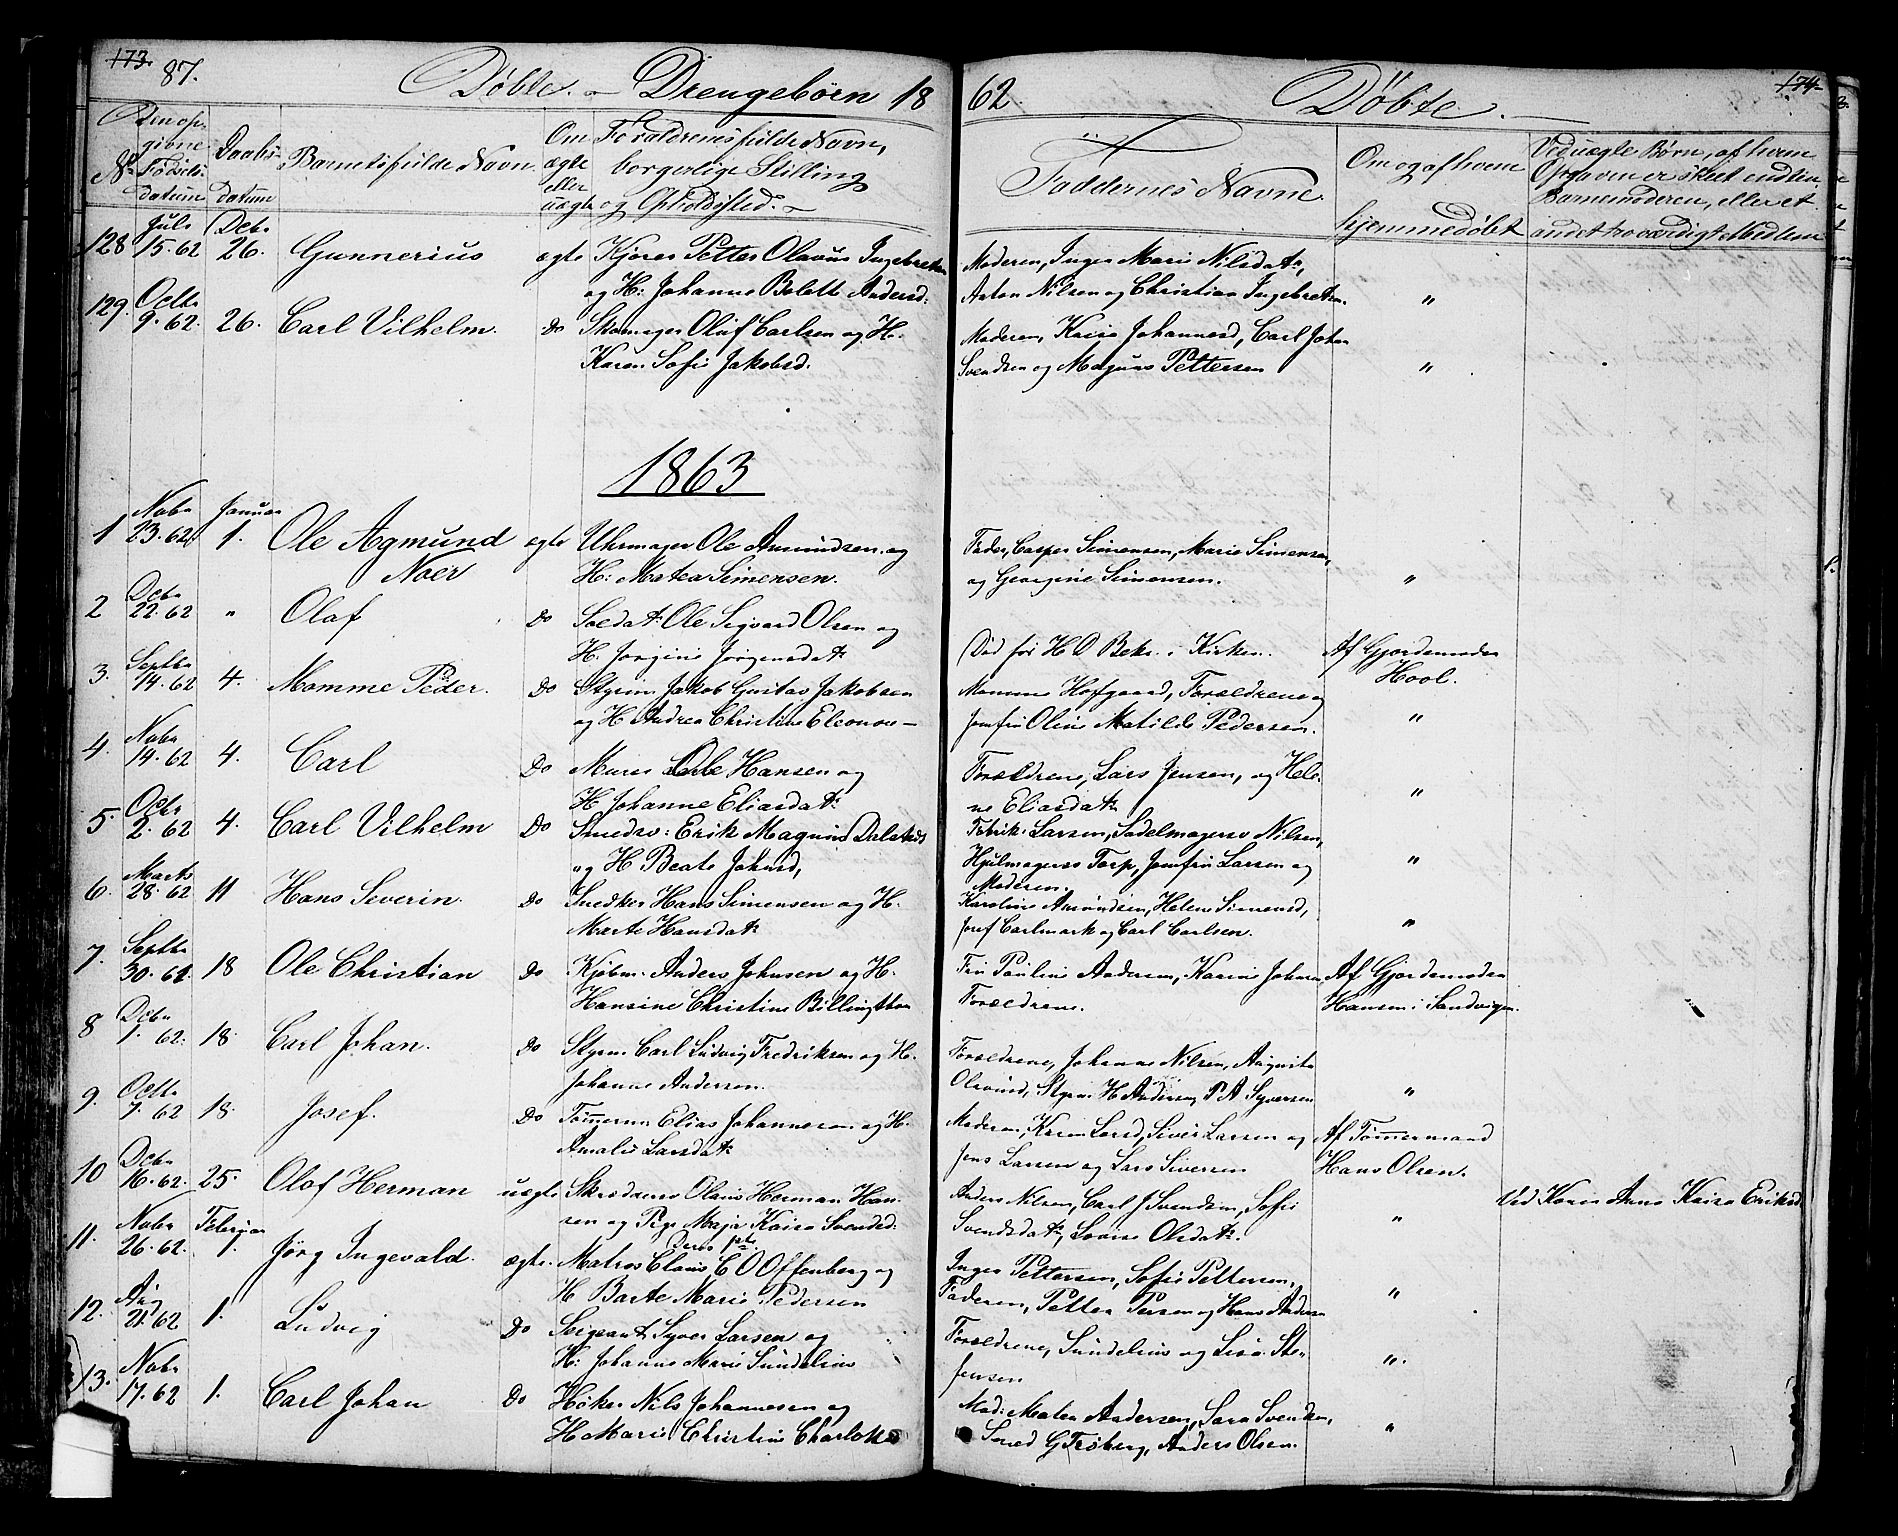 173. 87. Döbte. — Drengebørn 18
Den opgivne Fødselsdatum
No
Daabsdatum
Barnets fulde Navn
Om ægte eller uægte
Forældrenes fulde Navn, borgerlige Stilling og Opholdssted. —
Juli Decbr
128 15.62 26. Gunnerius ægte Kjører Petter Olaus Ingebretsen
og H: Johanne Bolette Andersd:
Octbr
129. 9.62. 26. Carl Vilhelm. Do Skomager Olaf Carlsen og H.
Karen Sofie Jakobsd.
1863
Novbr Januar
1 23.62 1. Ole Agmund Noer ægte Uhrmager Ole Amundsen og
H: Matea Simensen.
Decbr
2 22.62 " Olaf Do Soldat Ole Sigvard Olsen og
H. Jorgine Jørgensdatr
Septbr
3. 14.62 4. Momme Peder. Do Styrm: Jakob Gustav Jakobsen
og H Andrea Christine Eleonore —
Novbr
4. 14.62 4. Carl Do Murer Ole Hansen og
H Johanne Eliasdatr
Octbr
5. 2.62 4. Carl Vilhelm Do Smedsv: Erik Magnus
og H Beate Johnsd,
Marts
6. 28.62 11 Hans Severin. Do Snedker Hans Simensen og H.
Marte Hansdatr
Septbr
7. 30.62 18 Ole Christian Do Kjøbm. Anders Johnsen og H.
Hansine Christine
Decbr
8 1.62. 18. Carl Johan. Do Styrm. Carl Ludvig Fredriksen og H.
Johanne Andersen.
Octbr
9. 7.62 18. Josef. Do Tømmerm. Elias Johannesen og H.
Amalie Larsdatr
Decbr
10 16.62. 25. Olof Herman uægte Skrædersv Olaus Herman Hansen
og Pige Maja Kaisa Svendsd:
Deres 1ste
Novbr Februar
11. 26.62. 1. Jørg Ingevald. ægte. Matros Claus C O Offenberg og
H Barte Marie Pedersen
Aug
12. 21.62 1. Ludvig Do Seigeant Syver Larsen og
H: Johanne Marie Sundelius
Novbr
13. 17.62 1. Carl Johan Do Høker Nils Johannesen og
H Marie Christine Charlotte
62 Döbte. — 174
Faddernes Navne.
Om og af hvem hjemmedøbt
Ved uægte Børn, af hvem Opgaven er skeet endten Barnemoderen, eller et andet troværdigt Medlem
Moderen, Inger Marie Nilsdatr,
Anton Nilsen og Christian Ingebretsen. "
Moderen, Kaisa Johannesd, Carl Johan
Svendsen og Magnus Pettersen "
Fader, Casper Simensen, Marie Simensen,
og Georgine Simensen. "
Død før H D Bekr. i Kirken. Af Gjordemoder
Hool.
Momme Hofgaard, Forældrene og
Jomfru Oline Matilde Pedersen. "
Forældrene, Lars Jensen, og Helene
Eliasdatr "
Fabrik: Larsen, Sadelmagersv Nilsen,
Hjulmagersv Torp, Jomfru Larsen og
Moderen. "
Karoline Amundsen, Helene Simensd,
Josef Carlmark og Carl Carlsen. "
Fru Pauline Andersen, Karine Johnsen Af Gjordemoder
Forældrene. Hansen i Sandvigen.
Forældrene, Johanne Nilsen, Augusta
Olavusd, Styrm H Andersen, P A Syversen "
Moderen, Karen Larsd, Siver Larsen og Af Tømmermand
Jens Larsen og Lars Siversen Hans Olsen.
Anders Nilsen, Carl J Svendsen, Sofie
Svendsdatr, Lovise Olsdatr. " Ved Konen Anna Kaisa Eriksd
Inger Pettersen, Sofie Pettersen,
Faderen, Petter Persen og Hans Andersen "
Forældrene, Sundelius og Lisa
Jensen "
Mod: Maten Andersen, Sara Svendsen,
Smed G Frøberg, Anders Olsen. "